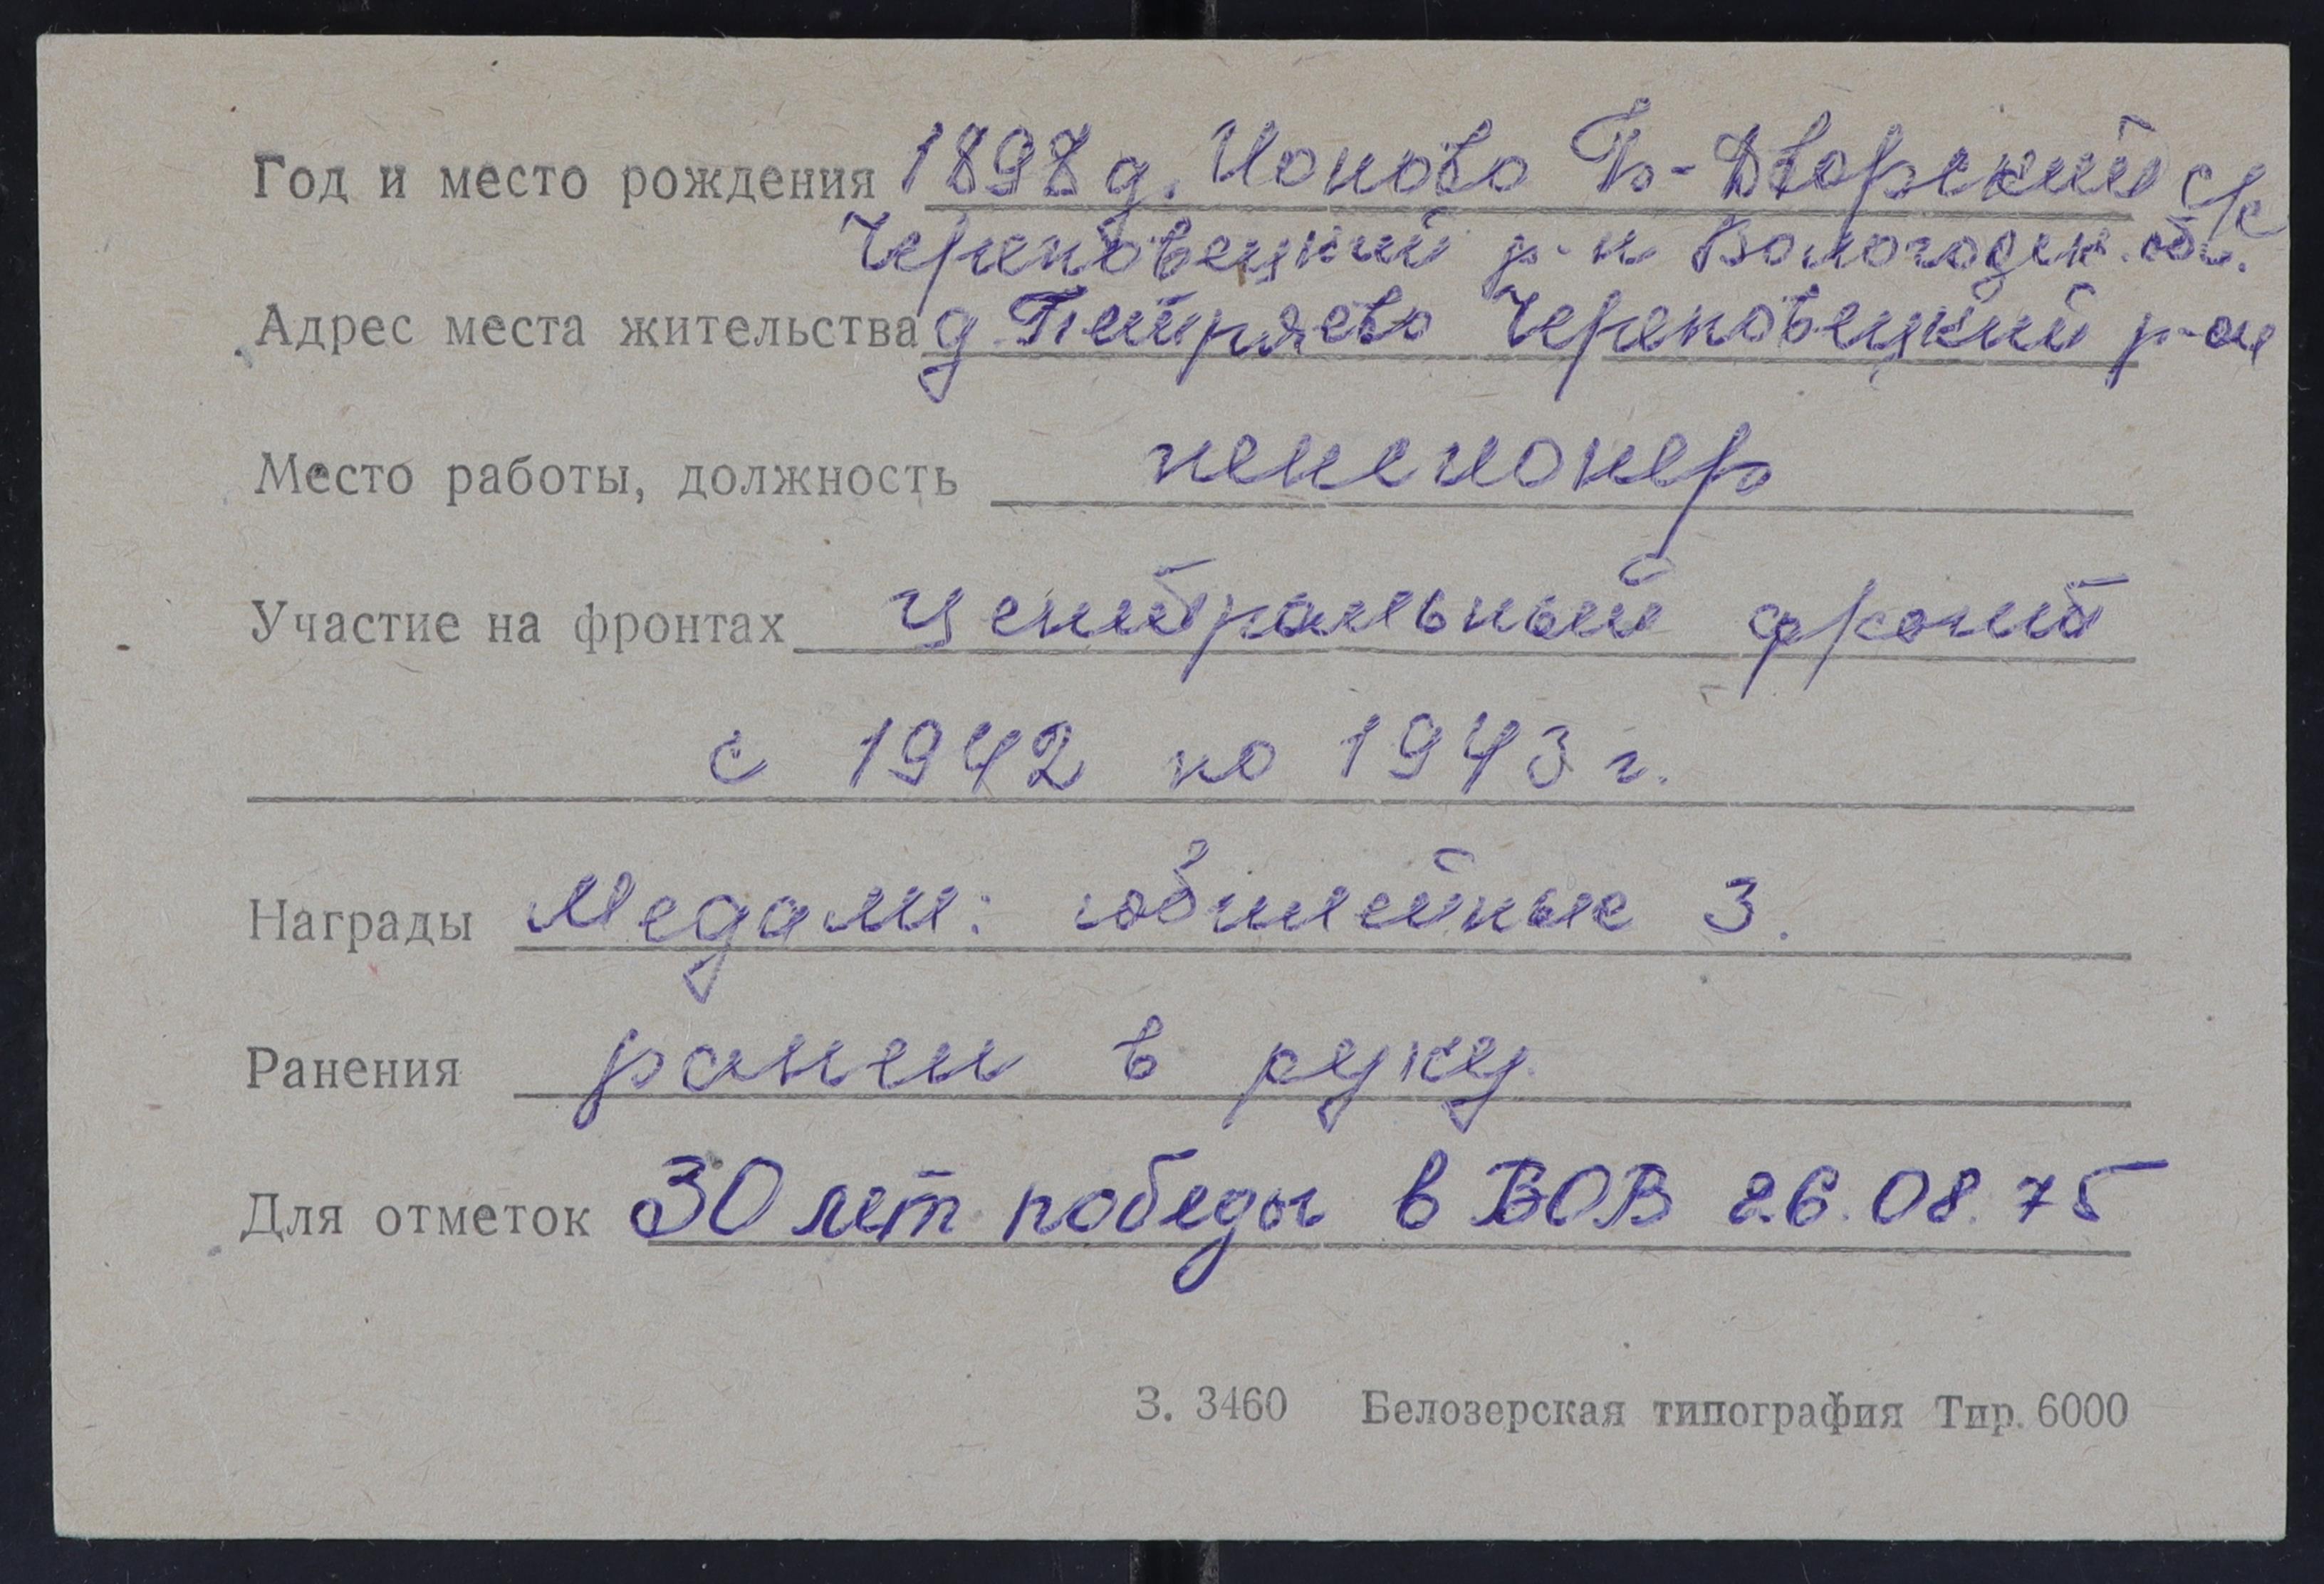 Год и место рождения 1898 д. Ионово Б-Дворский с/с
Череповецкий р-н Вологодск. обл.
Адрес места жительства д. Петряево Череповецкий р-он
Место работы, должность пенсионер
Участие на фронтах центральный фронт
с 1942 по 1943 г.
Награды Медали: юбилейные 3.
Ранения ранен в руку.
Для отметок 30 лет победы в ВОВ 26.08.75
З. 3460 Белозерская типография Тир. 6000